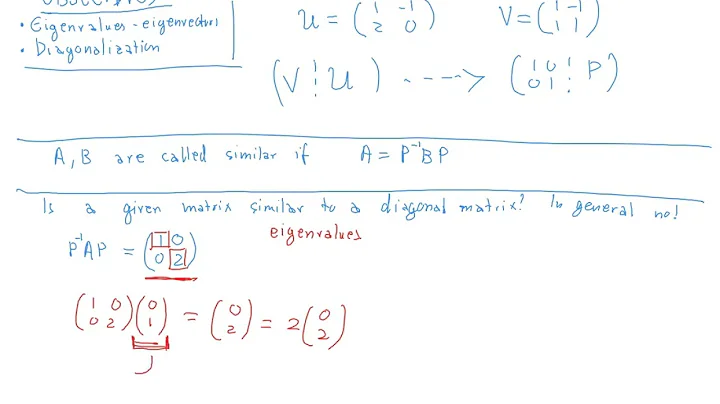 • Eigenvalues - eigenvectors
• Diagonalization
U = (1 -1
2 0)
V = (1 -1
1 1)
(V ¦ U) ----> (1 0
0 1 ¦ P)
A, B are called similar if A = P⁻¹BP
Is a given matrix similar to a diagonal matrix? In general no!
eigenvalues
P⁻¹AP = (1 0
0 2)
(1 0
0 2)(0
1) = (0
2) = 2(0
2)